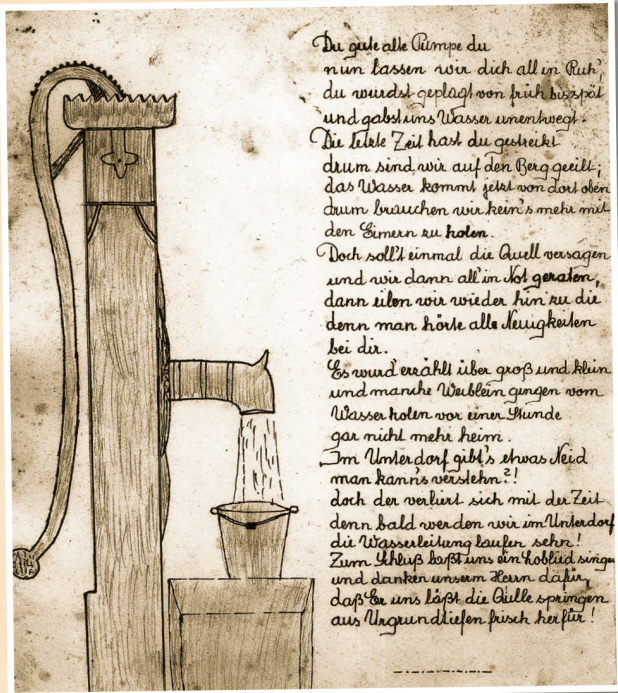 Du gute alte Pumpe du
nun lassen wir dich all in Ruh',
du wurdst geplagt von früh bis spät
und gabst uns Wasser unentwegt.
Die letzte Zeit hast du gestreikt
drum sind wir auf den Berg geeilt;
das Wasser kommt jetzt von dort oben
drum brauchen wir kein's mehr mit
den Eimern zu holen.
Doch sollt' einmal die Quell versagen
und wir dann all' in Not geraten,
dann eilen wir wieder hin zu dir
denn man hörte alle Neuigkeiten
bei dir.
Es wurd' erzählt über groß und klein
und manche Weiblein gingen vom
Wasser holen vor einer Stunde
gar nicht mehr heim.
Im Unterdorf gibt's etwas Neid
man kann's verstehn?!
doch der verliert sich mit der Zeit
denn bald werden wir im Unterdorf
die Wasserleitung laufen sehn!
Zum Schluß laßt uns ein Loblied singen
und danken unserm Herrn dafür,
daß Er uns läßt die Quelle springen
aus Urgrundtiefen frisch herfür!